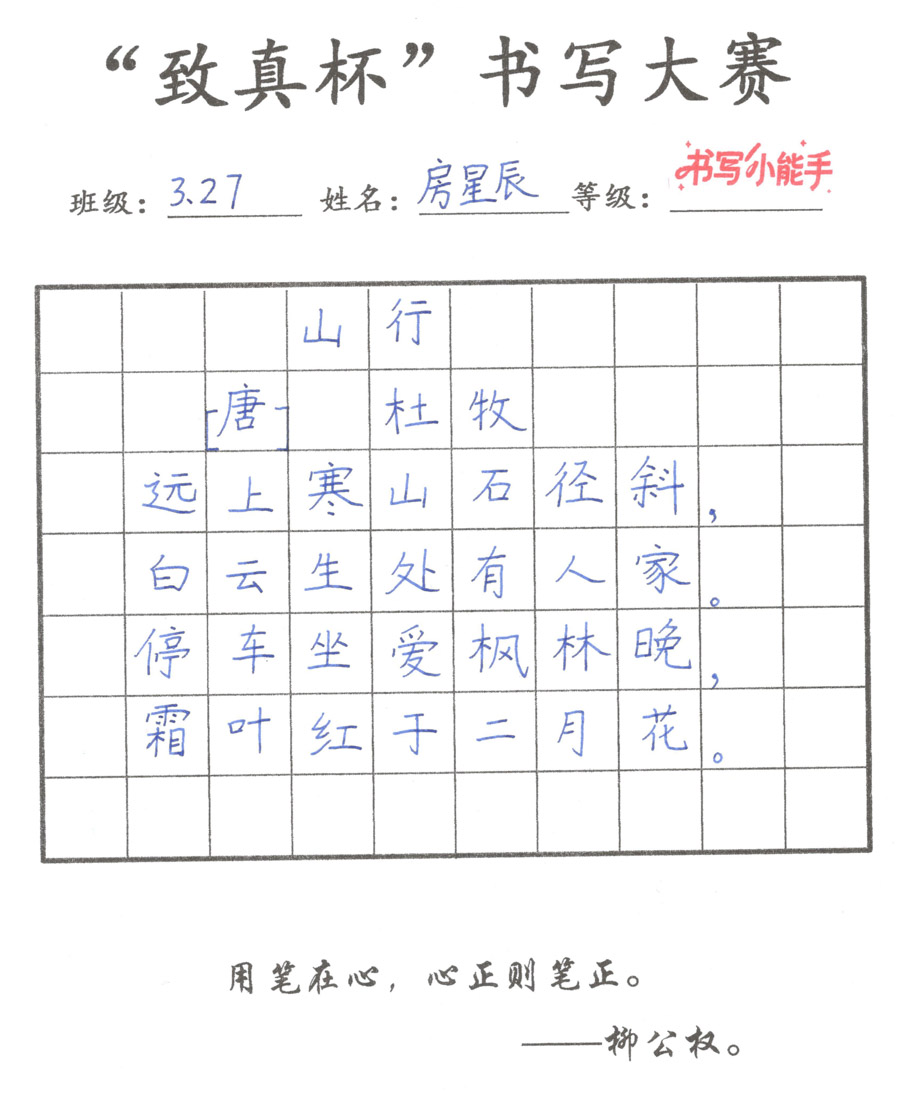 “致真杯”书写大赛
班级：3.27 姓名：房星辰 等级：书写小能手
山行
[唐] 杜牧
远上寒山石径斜，
白云生处有人家。
停车坐爱枫林晚，
霜叶红于二月花。
用笔在心，心正则笔正。
——柳公权。